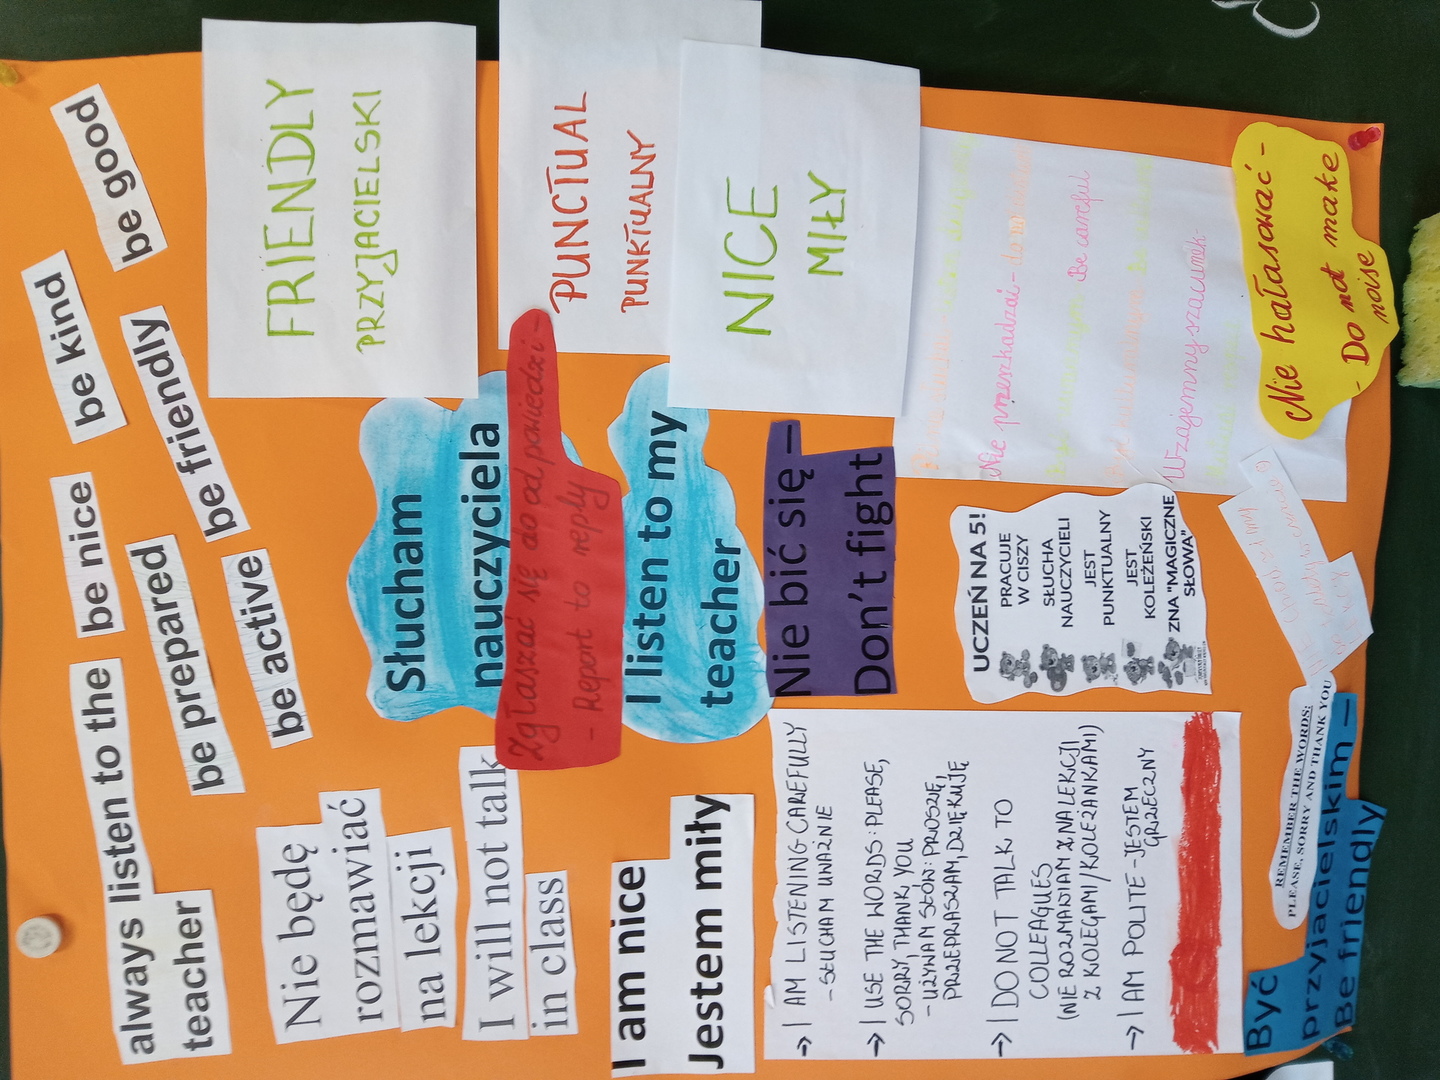 always listen to the
teacher
be nice
be kind
be prepared
be good
be active
be friendly
Nie będę
rozmawiać
na lekcji
I will not talk
in class
Słucham
nauczyciela
FRIENDLY
PRZYJACIELSKI
Zgłaszać się do odpowiedzi -
- Report to reply
PUNCTUAL
PUNKTUALNY
I am nice
Jestem miły
I listen to my
teacher
NICE
MIŁY
Nie bić się –
Don't fight
→ I AM LISTENING CAREFULLY
- SŁUCHAM UWAŻNIE
→ I USE THE WORDS: PLEASE,
SORRY, THANK YOU
- UŻYWAM SŁÓW: PROSZĘ,
PRZEPRASZAM, DZIĘKUJĘ
→ I DO NOT TALK TO
COLLEAGUES
(NIE ROZMAWIAM Z NA LEKCJI
Z KOLEGAMI/KOLEŻANKAMI)
→ I AM POLITE - JESTEM
GRZECZNY
UCZEŃ NA 5!
PRACUJE
W CISZY
SŁUCHA
NAUCZYCIELI
JEST
PUNKTUALNY
JEST
KOLEŻEŃSKI
ZNA "MAGICZNE
SŁOWA"
Nie przeszkadzać -
Be careful
Wzajemny szacunek -
Nie hałasować -
- Do not make
noise
REMEMBER THE WORDS:
PLEASE, SORRY AND THANK YOU
Być
przyjacielskim –
Be friendly